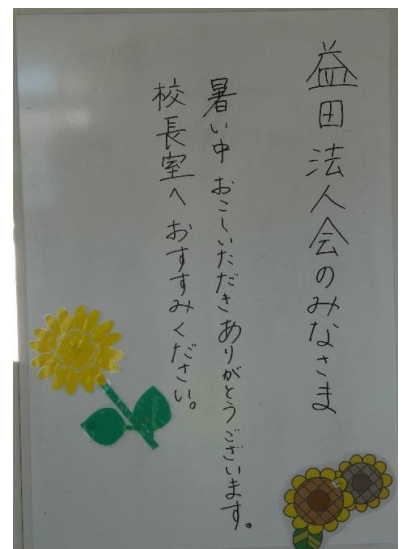 益田法人会のみなさま
暑い中 おこしいただきありがとうございます。
校長室へ おすすみください。